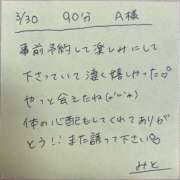 3/30 90分 A様
事前予約して楽しみにして
下さっていて凄く嬉しかった♡
やっと会えたね(*ˊᵕˋ*)
体の心配もしてくれてありが
とう!!また誘って下さい♡
みと